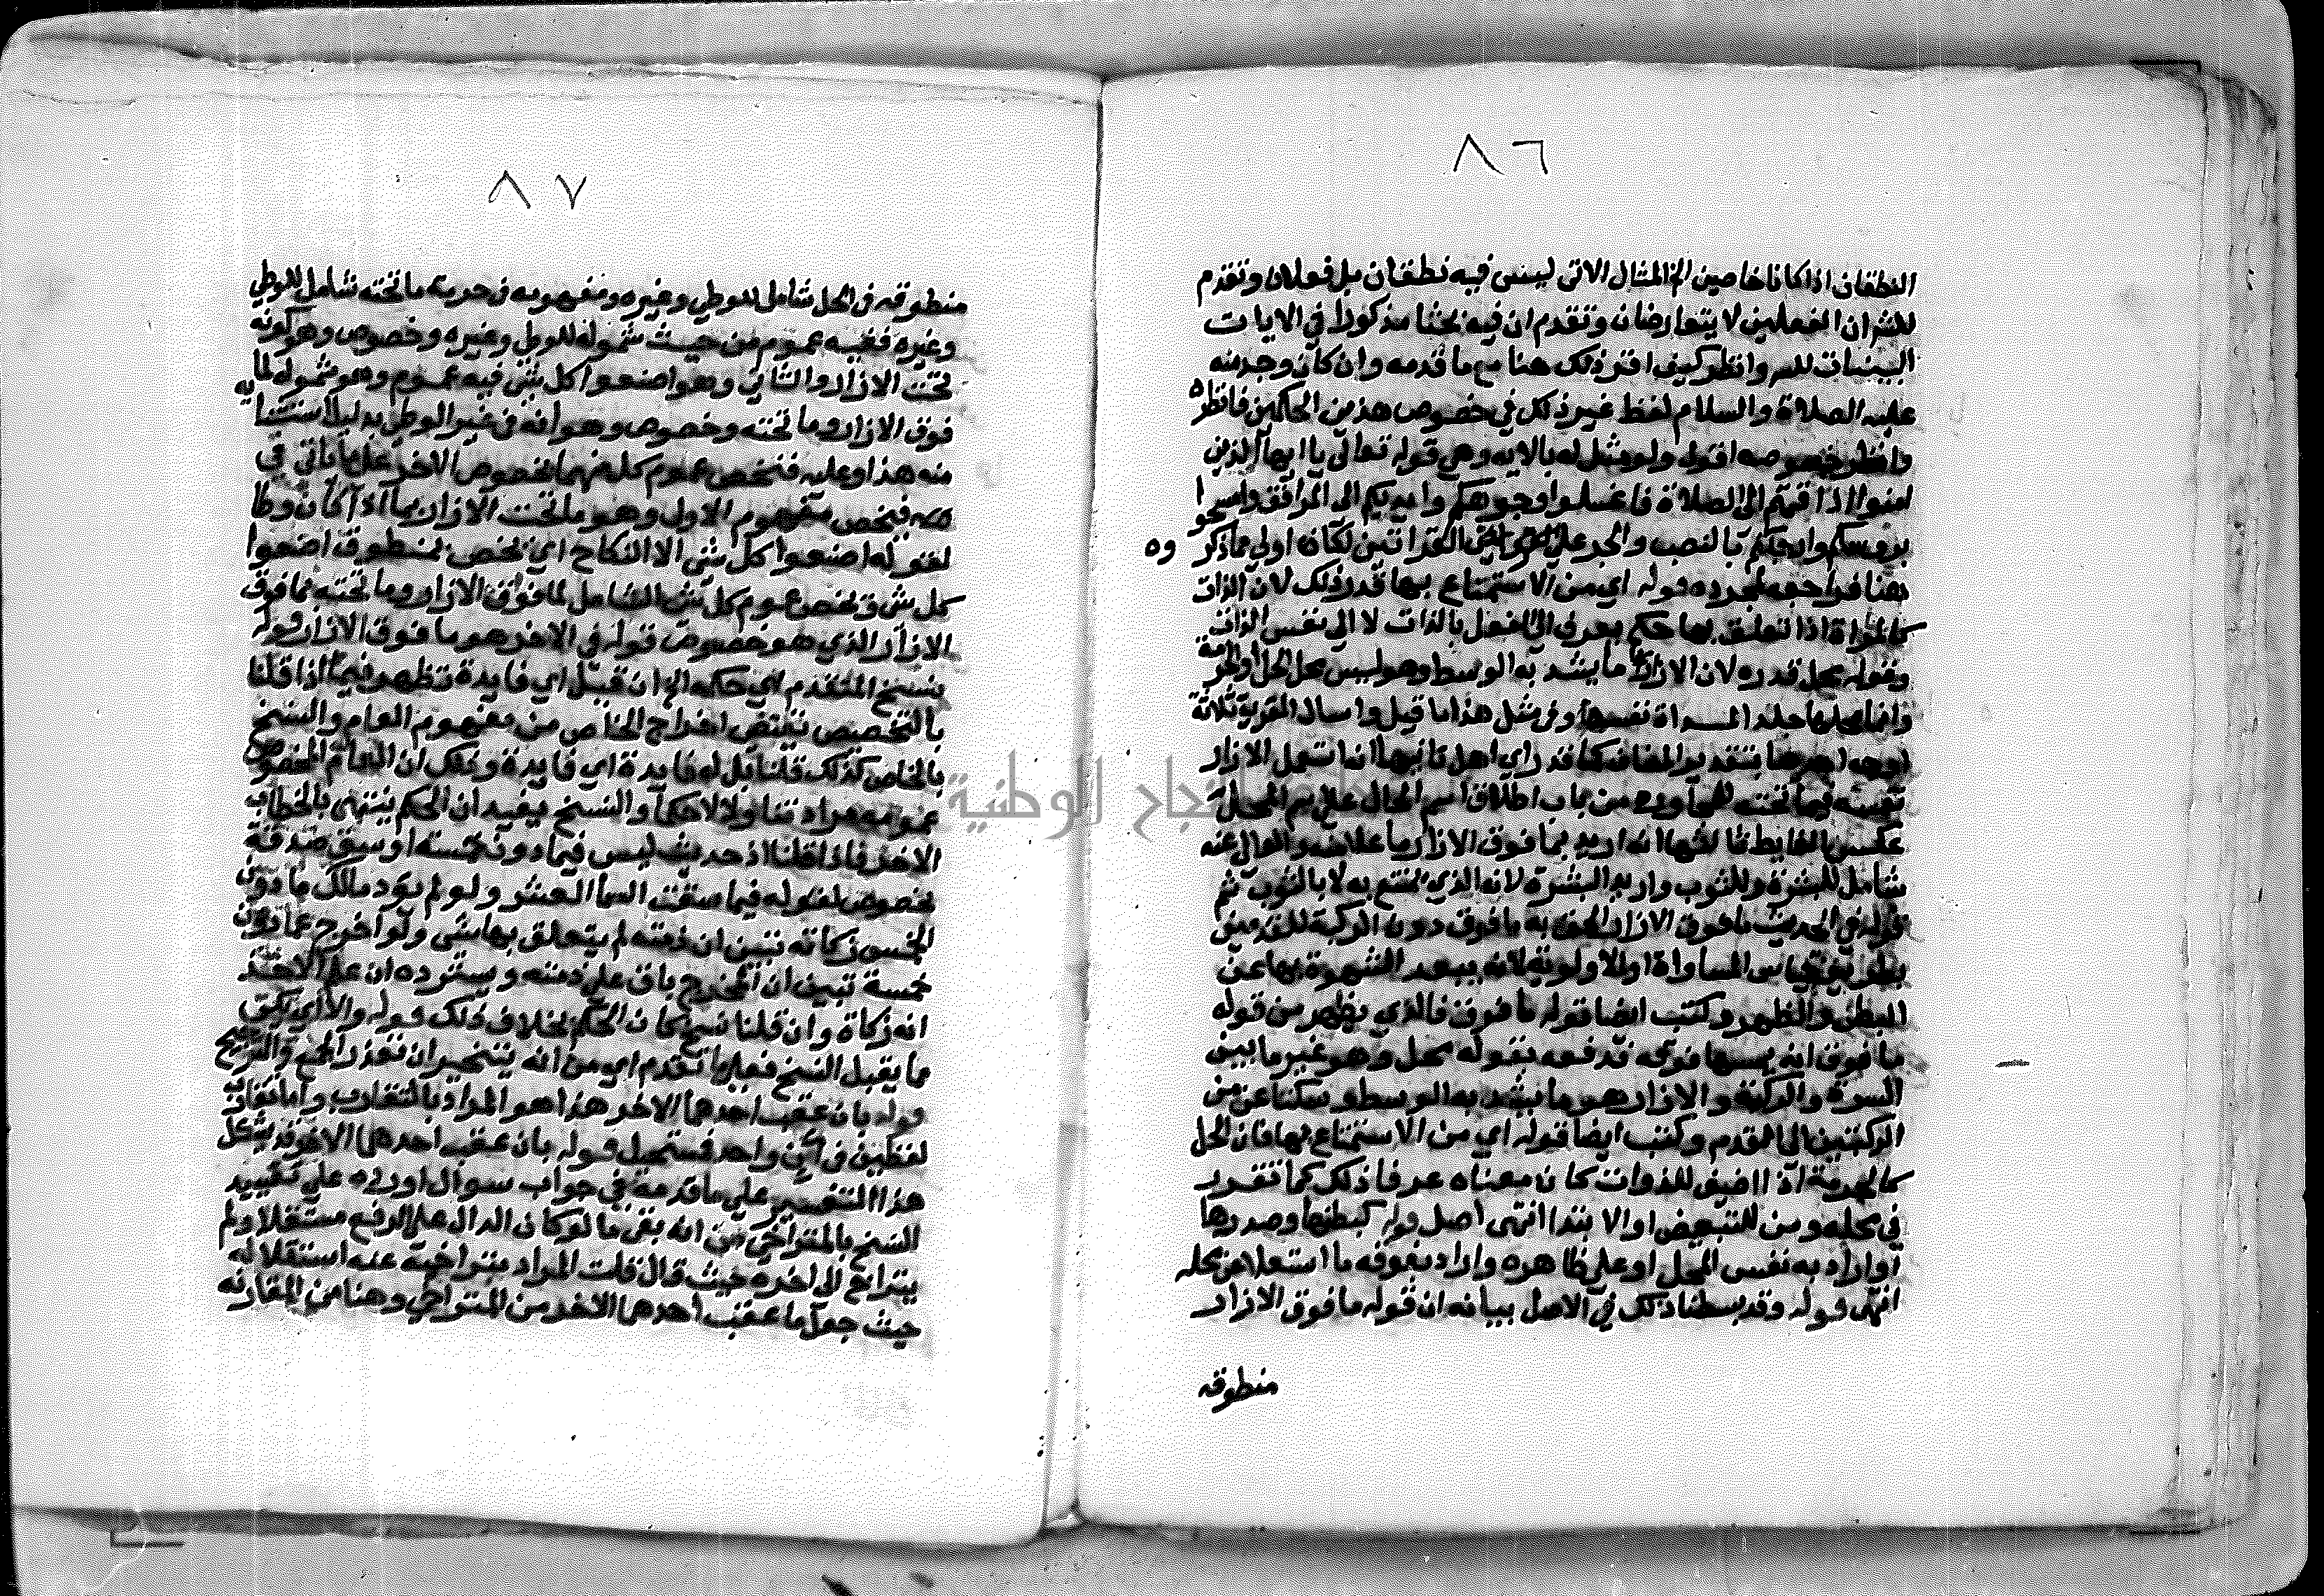 ٨٦
النطقان اذا كانا خاصين الخ المثال الاتى ليس فيه نطقان بل فعلان وتقدم
للشر ان الفعلين لا يتعارضان وتقدم ان فيه بحثا مذكورا في الايات
البينات للسر وانظر كيف اقر ذلك هنا مع ما قدمه وان كان وجد منه
عليه الصلاة والسلام لفظ غير ذلك في خصوص هذين الحكمين فانظره
وانظر خصوصه اقول ولو مثل له بالايه وهي قوله تعالى يا ايها الذين
امنوا اذا قمتم الى الصلاة فاغسلوا وجوهكم وايديكم الى المرافق وامسحوا
بروسكم وارجلكم بالنصب والجر على القراتين لكان اولى مما ذكروه
هنا فراجعه لمجرده قوله اي من الاستمتاع بها قدر ذلك لان الذات
كالمراة اذا تعلق بها حكم يصرف الى الفعل بالذات لا الى نفس الذات
وقوله بحل قدره لان الازار ما يشد به الوسط وهو ليس محل الحل او الحرمة
وانما محلها جلد المراة نفسها وفى مثل هذا ما قيل واسال القرية ثلاثة
اوجه احدها بتقدير المضاف كما قدر اي اهل ثانيها انه استعمل الازار
نفسه فيما تحته للمجاورة من باب اطلاق اسم الحال على اسم المحل
عكس الغايط ثالثها انه اريد بما فوق الازار ما علا منه والعال عنه
شامل للبشرة وللثوب واريد البشرة لانه الذي يتمتع به لا بالثوب ثم
قوله في الحديث ما فوق الازار الحق به ما فوق دون الركبة للقدمين
بطريق قياس المساواة او الاولوية لانه يبعد الشهوة بها عن
البطن والظهر وكتب ايضا قوله ما فوق فالذي يظهر من قوله
ما فوق انه يسها فوقه قد فعه بقوله بحل وهو غير ما بين
السرة والركبة والازار هو ما يشد به الوسط وسكتا عن من
الركبتين الى القدم وكتب ايضا قوله اي من الاستمتاع بها فان الحل
كالحرمة اذا اضيف للذوات كان معناه عرفا ذلك كما تقرر
في محله ومن للتبعيض او الابتدا انتهى اصل قوله كبطنها وصدرها
او اراد به نفس المحل او على ظاهره واراد بفوقه ما استعلا عن محله
انتهى قوله وقد بسطنا ذلك في الاصل بيانه ان قوله ما فوق الازار
منطوقه
٨٧
منطوقه في الحل شامل للوطي وغيره ومفهومه في حرمة ما تحته شامل للوطي
وغيره ففيه عموم من حيث شموله للوطي وغيره وخصوص وهو كونه
تحت الازار والثاني وهو اصنعوا كل شئ فيه عموم وهو شموله لما به
فوق الازار وما تحته وخصوص وهو انه في غير الوطي بدليل استثنا
منه هذا وعليه فنخص عموم كل منهما بخصوص الاخر على ما ياتى في
فنخص مفهوم الاول وهو ما تحت الازار بما اذا كان وطا
لقوله اصنعوا كل شئ الا النكاح اي نخص بمنطوق اصنعوا
كل شئ ونخص عموم كل شئ الشامل لما فوق الازار وما تحته بما فوق
الازار الذي هو خصوص قوله في الاخر هو ما فوق الازار قوله
ينسخ المتقدم اي حكمه الخ ان قيل اي فايدة تظهر فيما اذا قلنا
بالتخصيص تقتضى اخراج الخاص من مفهوم العام والنسخ
بالخاص كذلك قلنا بل له فايدة اي فايدة وذلك ان العام المخصوص
عمومه مراد تناولا لا حكما والنسخ يفيد ان الحكم ينتهى بالخطاب
الاخر فاذا قلنا اذ حديث ليس فيما دون خمسة اوسق صدقة
مخصوص لقوله فيما سقت السما العشر ولو لم يؤد مالك ما دون
الخمس زكاته تبين ان ذمته لم يتعلق بها شى ولو اخرج عما دون
خمسة تبين ان المخرج باق على ذمته ويسترده ان علم الاخذ
انه زكاة وان قلنا نسخ كان الحكم بخلاف ذلك قوله والا اي يكن
مما يقبل النسخ فعلى ما تقدم اي من انه يتخير ان تعذر الجمع والترجيح
قوله بان عقب احدهما الاخر هذا هو المراد بالتقارب واما تقارن
لفظين في آن واحد فستحيل قوله بان عقب احدهما الاخر قد يشكل
هذا التفسير على ما قدمه في جواب سوال اورده على تقييد
النسخ بالمتراخي من انه بقى ما لو كان الدال على الرفع مستقلا ولم
يتراخ الى اخره حيث قال قلت المراد بتراخيه عنه استقلاله
حيث جعل ما عقب احدهما الاخر من المتراخي وهنا من المقارنه